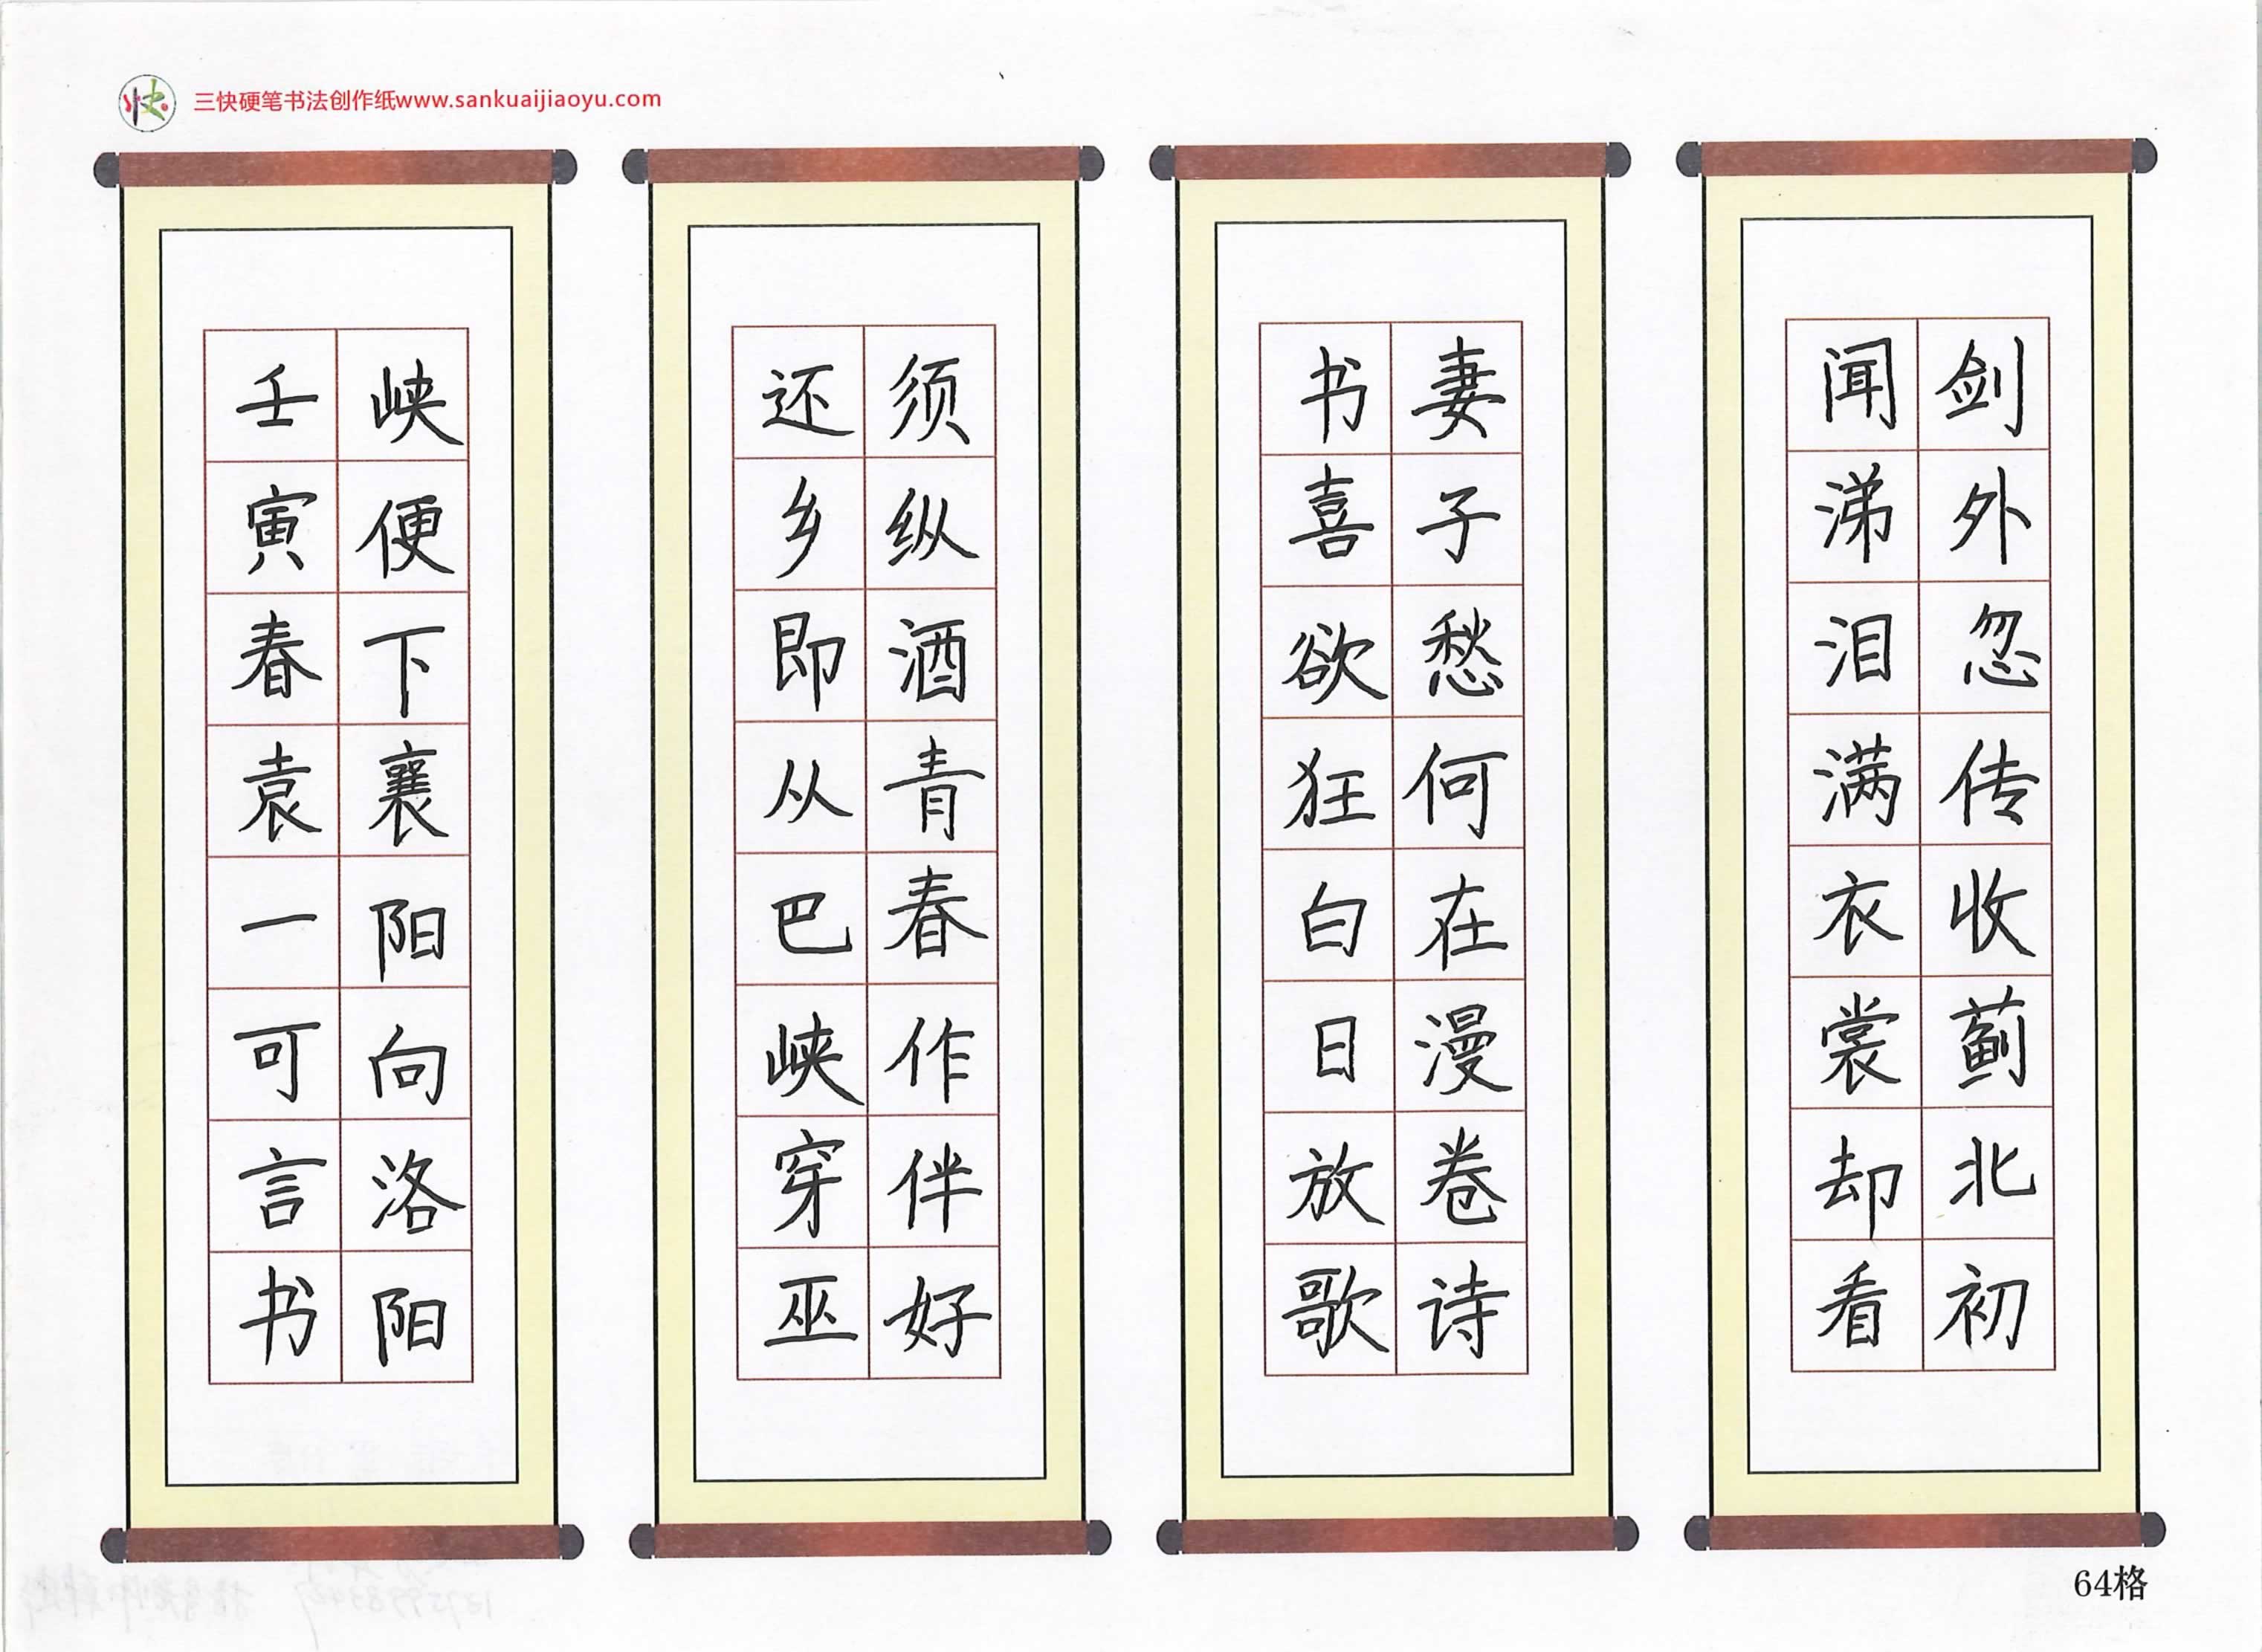 三快硬笔书法创作纸www.sankuaijiaoyu.com
剑外忽传收蓟北初
闻涕泪满衣裳却看
妻子愁何在漫卷诗
书喜欲狂白日放歌
须纵酒青春作伴好
还乡即从巴峡穿巫
峡便下襄阳向洛阳
壬寅春袁一可言书
64格